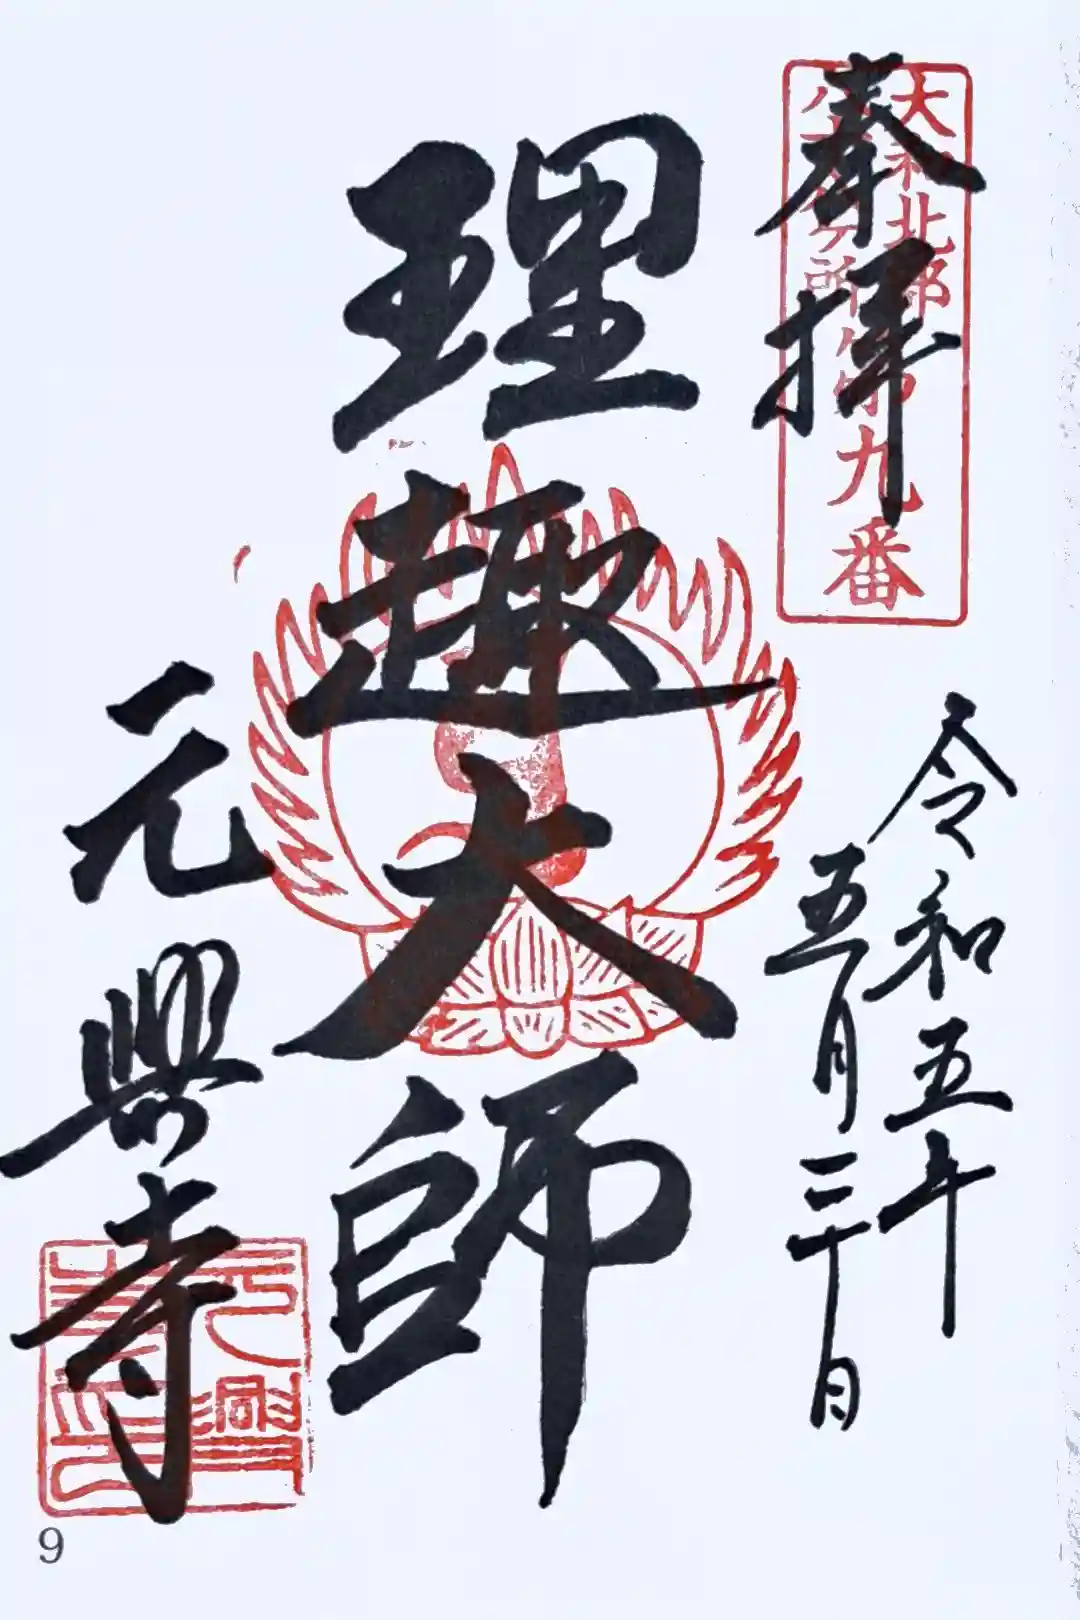 奉拝
大和北部
八十八ヶ所
第九番
令和五年
五月三十日
理趣大師
元興寺
元興
寺印
9